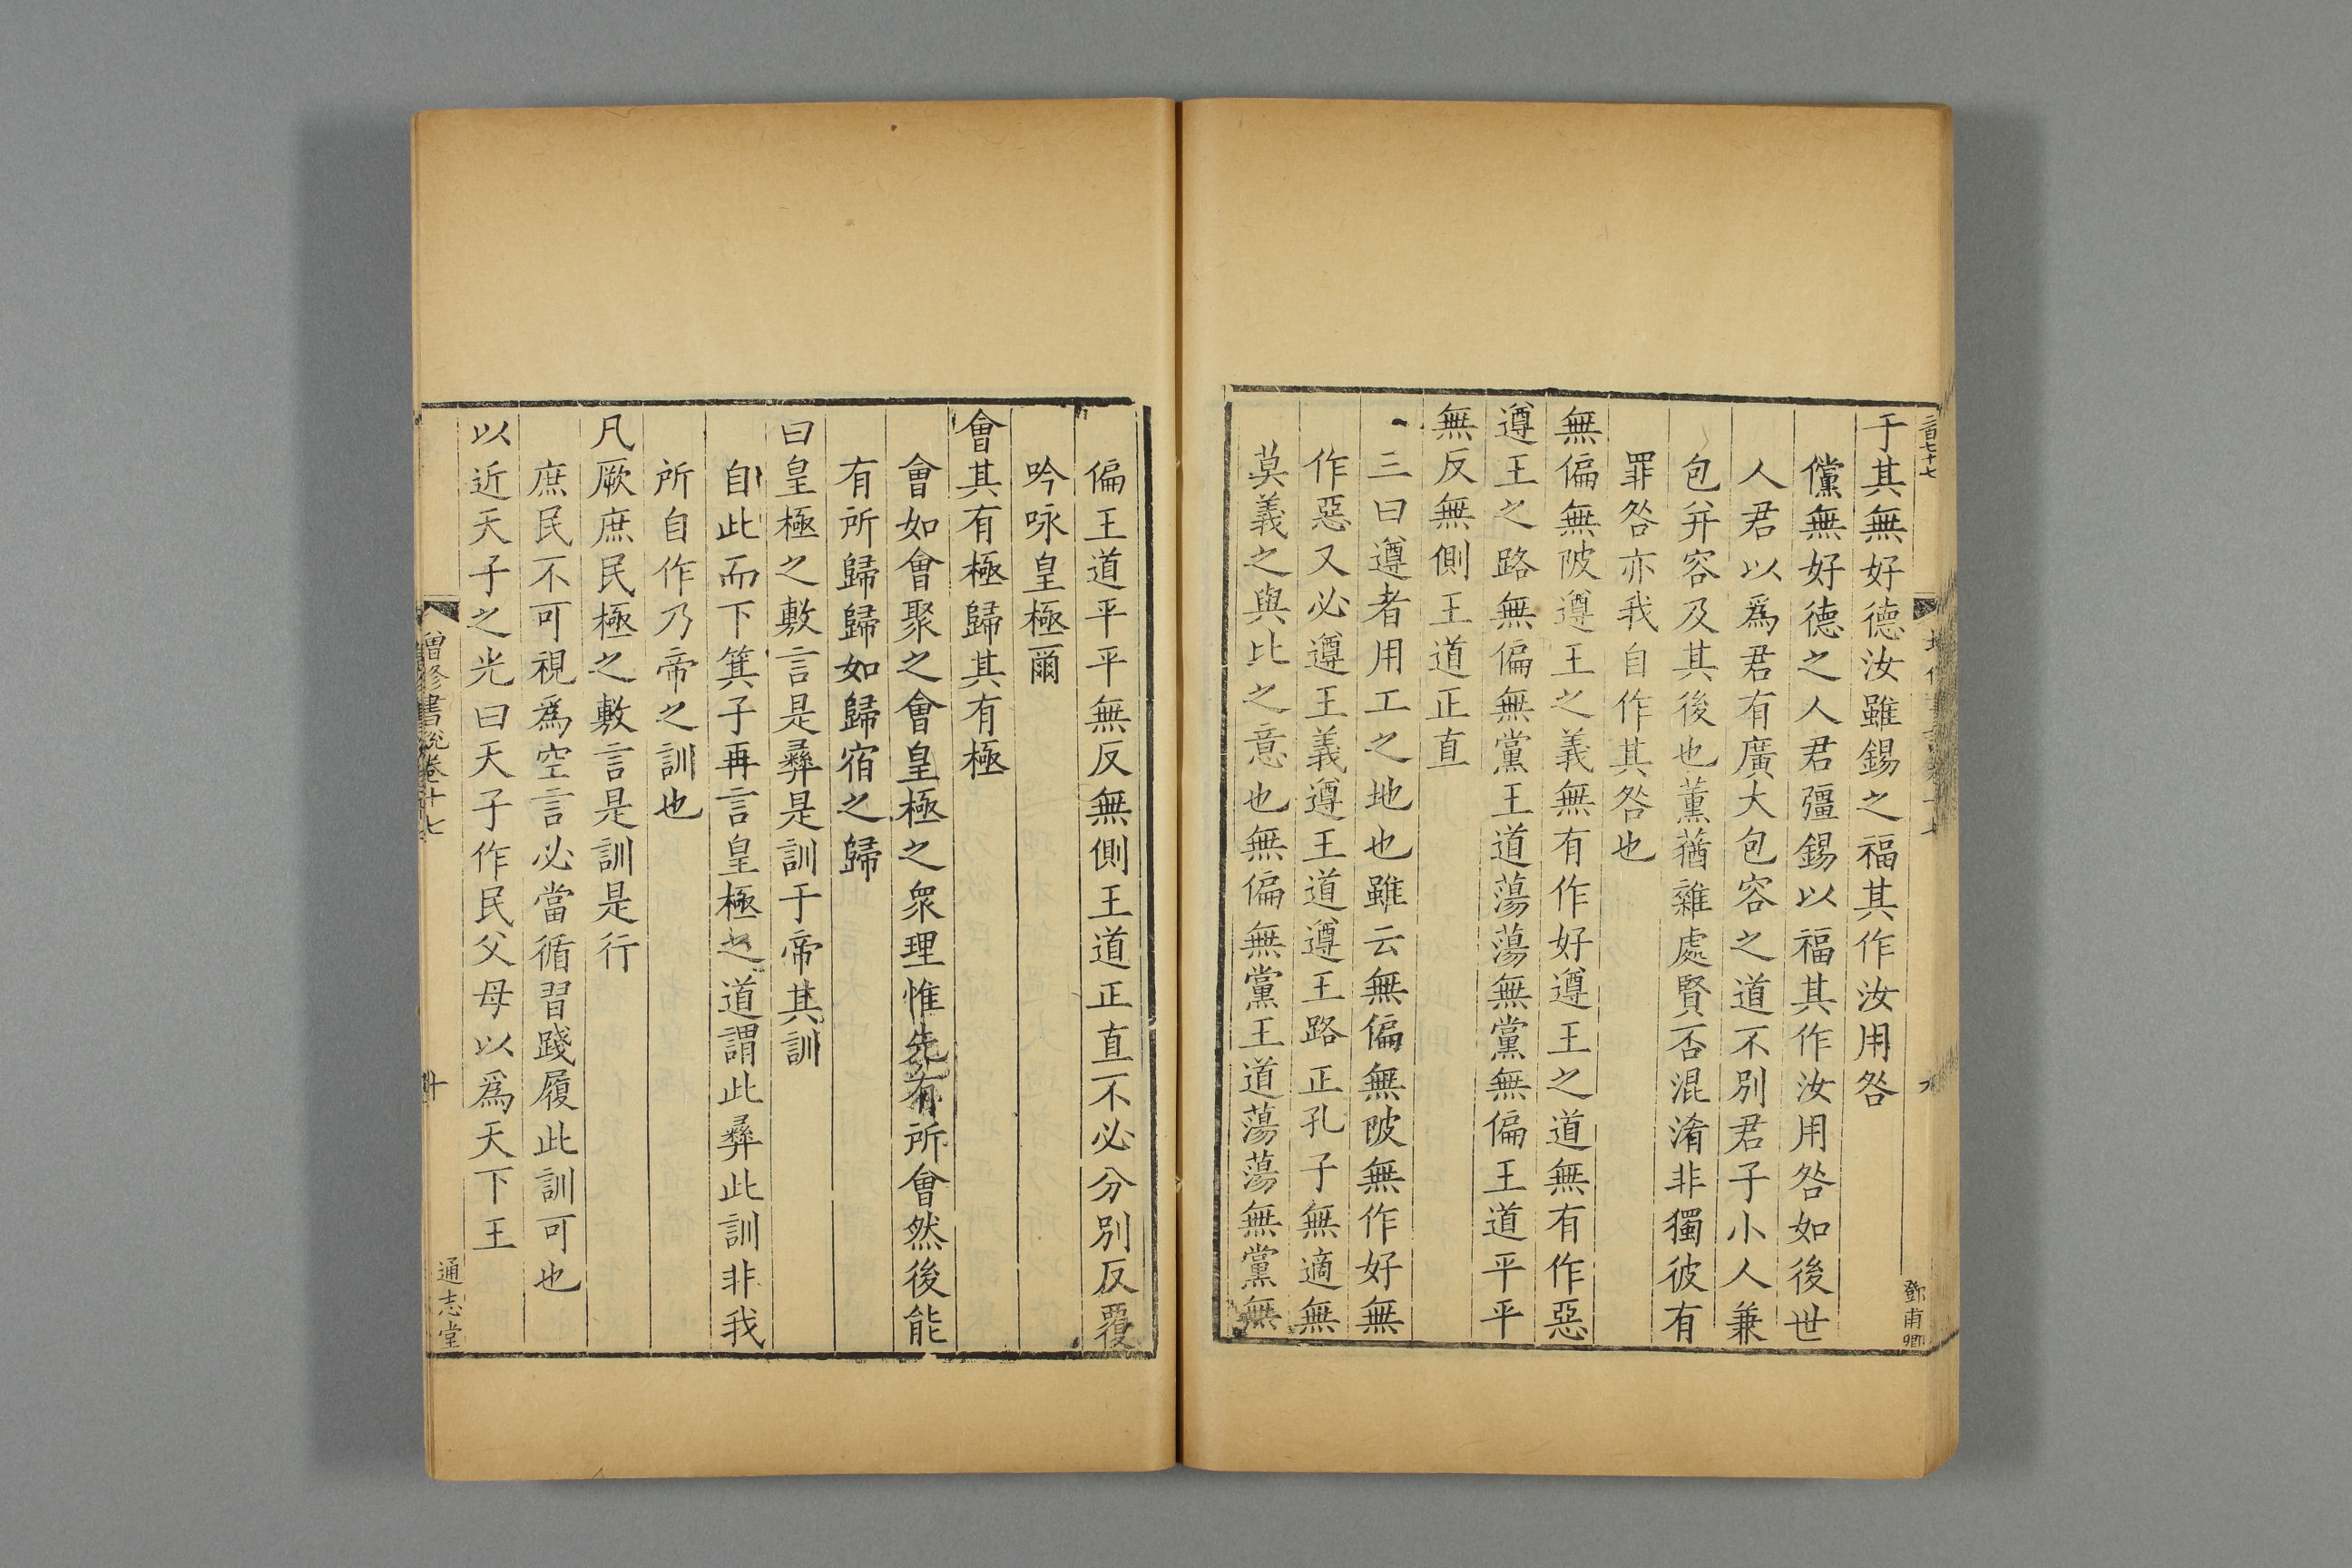 于其無好德汝雖錫之福其作汝用咎
儻無好德之人君彊錫以福其作汝用咎如後世
人君以為君有廣大包容之道不別君子小人兼
包并容及其後也薰蕕雜處賢否混淆非獨彼有
罪咎亦我自作其咎也
無偏無陂遵王之義無有作好遵王之道無有作惡
遵王之路無偏無黨王道蕩蕩無黨無偏王道平平
無反無側王道正直
三曰遵者用工之地也雖云無偏無陂無作好無
作惡又必遵王義遵王道遵王路正孔子無適無
莫義之與比之意也無偏無黨王道蕩蕩無黨無
鄧甫卿
偏王道平平無反無側王道正直不必分別反覆
吟咏皇極爾
會其有極歸其有極
會如會聚之會皇極之衆理惟先有所會然後能
有所歸歸如歸宿之歸
曰皇極之敷言是彝是訓于帝其訓
自此而下箕子再言皇極之道謂此彝此訓非我
所自作乃帝之訓也
凡厥庶民極之敷言是訓是行
庶民不可視為空言必當循習踐履此訓可也
以近天子之光曰天子作民父母以為天下王
增修書說卷十七
十
通志堂